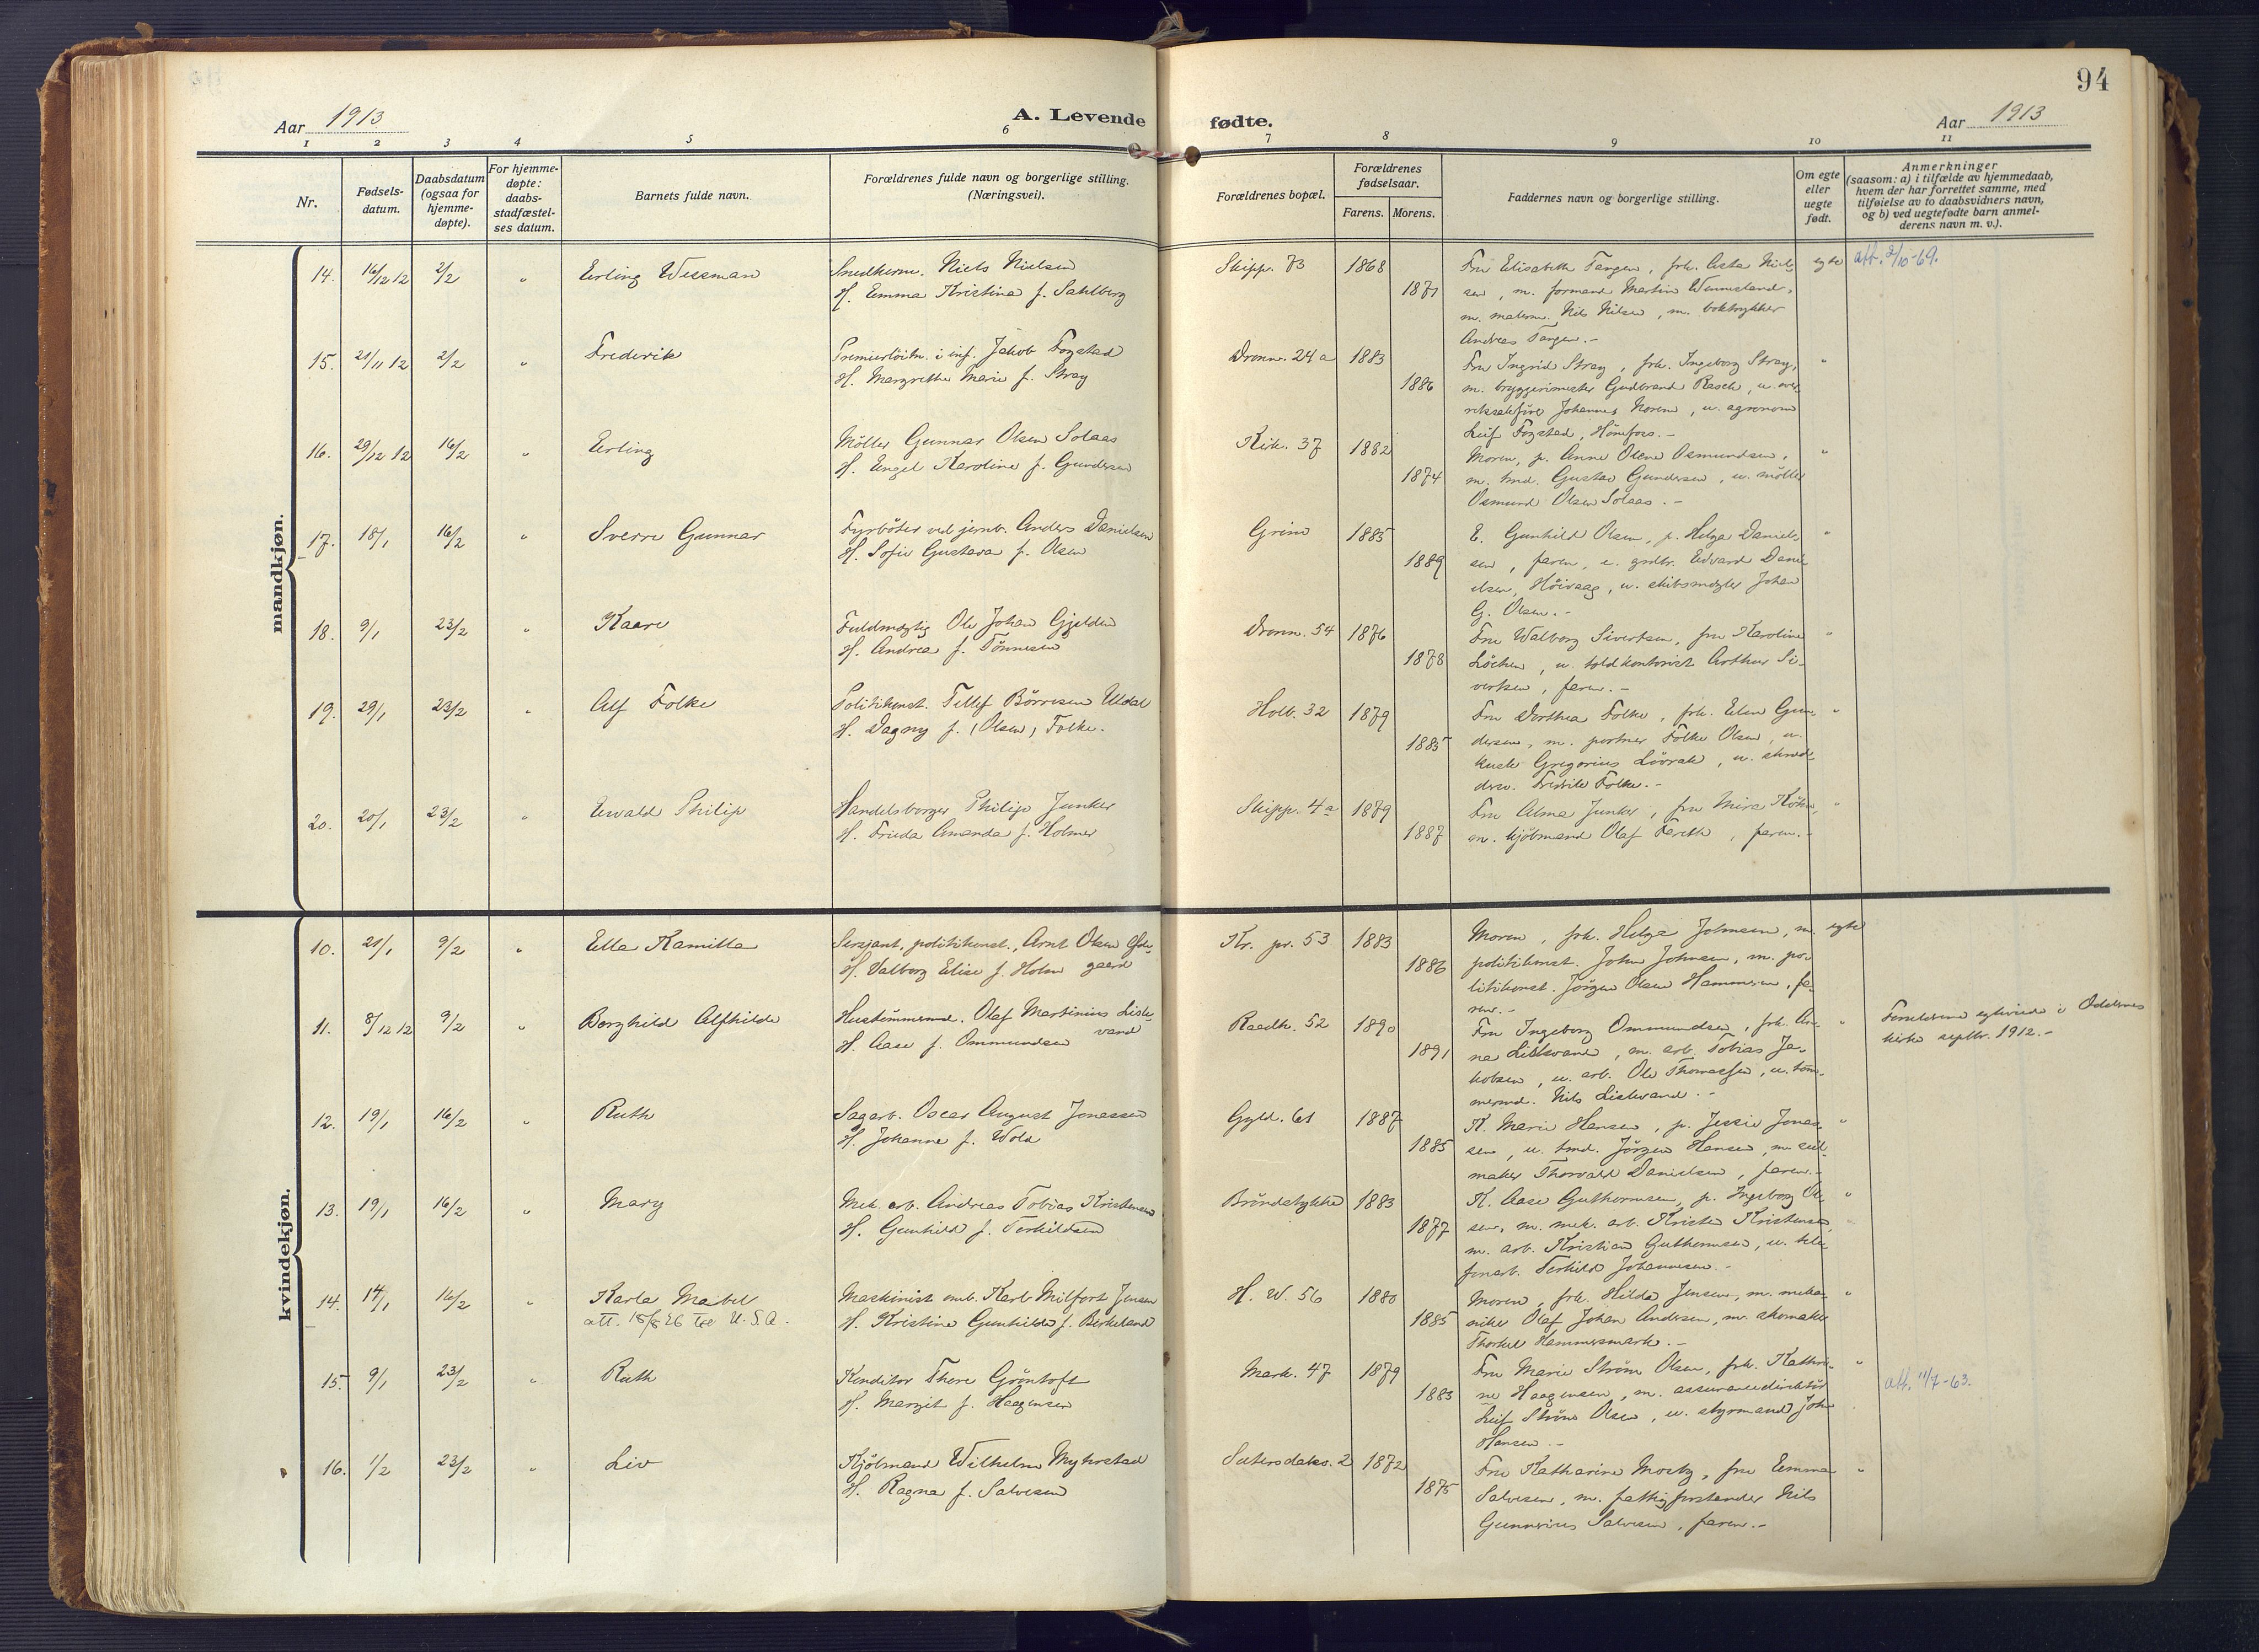 94
Aar 1913
A. Levende fødte.
Aar 1913
1 2 3 4 5 6 7 8 9 10 11
Nr.
Fødsels-
datum.
Daabsdatum
(ogsaa for
hjemme-
døpte).
For hjemme-
døpte:
daabs-
stadfæstel-
ses datum.
Barnets fulde navn.
Forældrenes fulde navn og borgerlige stilling.
(Næringsvei).
Forældrenes bopæl.
Forældrenes
fødselsaar.
Farens. Morens.
Faddernes navn og borgerlige stilling.
Om egte
eller
uegte
født.
Anmerkninger
(saasom: a) i tilfælde av hjemmedaab,
hvem der har forrettet samme, med
tilføielse av to daabsvidners navn,
og b) ved uegtefødte barn anmel-
derens navn m. v.).
mandkjøn.
14. 16/12 12 2/2 " Erling Wessman
Snedkerm. Niels Nielsen
H. Emma Kristina f. Sahlberg
Skipp. 73 1868
1871
Fru Elisabeth Tangen, frk. Asta Niel-
sen, m. formand Martin
m. malerm. Nils Nilsen, m. boktrykker
Andreas Tangen.-
egte
att. 2/10-69.
15. 21/11 12 2/2 " Frederik
Premierløitn. i inf. Jakob Fogstad
H. Margrethe Marie f. Stray
Dronn. 24a 1883
1886
Fru Ingrid Stray, frk. Ingeborg Stray,
m. bryggerimester Gudbrand Rasch, u. over-
retssakfører Johannes Moren, u. agronom
Leif Fogstad, Hønefos.-
"
16. 29/12 12 16/2 " Erling
Møller Gunnar Olsen Solaas
H. Engel Karoline f. Gundersen
Kirk. 37 1882
1874
Moren, p. Anne Olene Osmundsen,
m. tmd. Gustav Gundersen, u. møller
Osmund Olsen Solaas.-
"
17. 18/1 16/2 " Sverre Gunnar
Fyrbøter ved jernb. Anders Danielsen
H. Sofie Gustava f. Olsen
Grim 1885
1889
E. Gunhild Olsen, p. Helga Daniel-
sen, faren, u. grdbr. Edvard Dani-
elsen, Høivaag, u. skibsmægler Johan
G. Olsen.-
"
18. 9/1 23/2 " Kaare
Fuldmægtig Ole Johan Gjelden
H. Andrea f. Tønnesen
Dronn. 54 1876
1878
Fru Walborg Sivertsen, fru Karoline
Løchen, u. toldkontorist Arthur Si-
vertsen, faren.-
"
19. 29/1 23/2 " Alf Folke
Politikonst. Tellef Børresen Uldal
H. Dagny f. (Olsen) Folke.
Holb. 32 1879
1885
Fru Dorthea Folke, frk. Elen Gun-
dersen, m. portner Folke Olsen, u.
kusk Gregorius Løvrak, u. skræd-
dersv. Fredrik Folke.-
"
20. 20/1 23/2 " Ewald Philip
Handelsborger Philip Junker
H. Frieda Amanda f. Holmer
Skipp. 4a 1879
1887
Fru Alma Junker, fru Mira Köhn,
m. kjøbmand Olaf Fareth, faren.-
"
kvindekjøn.
10. 21/1 9/2 " Ella Kamilla
Sersjant, politikonst. Arnt Olsen Øde-
H. Valborg Elise f. Holm gaard
Kr. pr. 53 1883
1886
Moren, frk. Helga Johnsen, m.
politikonst. John Johnsen, m. po-
litikonst. Jørgen Olsen Hammersen, fa-
ren.-
egte
11. 8/12 12 9/2 " Borghild Alfhilde
Hustømmermd. Olaf Martinius Liste-
H. Aase f. Ommundsen vand
Raadh. 52 1890
1891
Fru Ingeborg Ommundsen, frk. An-
na Listevand, m. arb. Tobias Ja-
kobsen, u. arb. Ole Thomassen, u. tøm-
mermd. Nils Listevand.-
"
Forældrene egteviede i Oddernes
kirke septbr. 1912.-
12. 19/1 16/2 " Ruth
Sagarb. Oscar August Jonassen
H. Johanne f. Wold
Gyld. 61 1887
1885
K. Marie Hansen, p. Jessie Jonas-
sen, u. tmd. Jørgen Hansen, m. seil-
maker Thorvald Danielsen, faren.-
"
13. 19/1 16/2 " Mary
Mek. arb. Andreas Tobias Kristensen
H. Gunhild f. Terkildsen
Brøndstykke 1883
1877
K. Aase Guthormsen, p. Ingeborg Ol-
sen, m. mek. arb. Krister Kristensen,
m. arb. Kristian Guthormsen, u. tele-
fonarb. Terkild Johannesen.-
"
14. 14/1 16/2 " Karla Mabel
att. 18/8 26 til U.S.A.
Maskinist omb. Karl Milfort Jensen
H. Kristine Gunhilde f. Birkeland
H. W. 56 1880
1885
Moren, frk. Hilda Jensen, m. meka-
niker Olaf Johan Andersen, m. skomaker
Thorkel Hammersmark.-
"
15. 9/1 23/2 " Ruth
Konditor Thore Grøntoft
H. Margit f. Haagensen
Mark. 47 1879
1883
Fru Marie Strøm Olsen, frk. Kathri-
ne Haagensen, m. assurancedirektør
Leif Strøm Olsen, u. styrmand John
Hansen.-
"
att. 11/7-63.
16. 1/2 23/2 " Liv
Kjøbmand Wilhelm Myhrstad
H. Ragna f. Salvesen
Setersdalsv. 2 1872
1875
Fru Katharine Mortz, fru Emma
Salvesen, m. fattigforstander Nils
Gunnerius Salvesen, faren.-
"